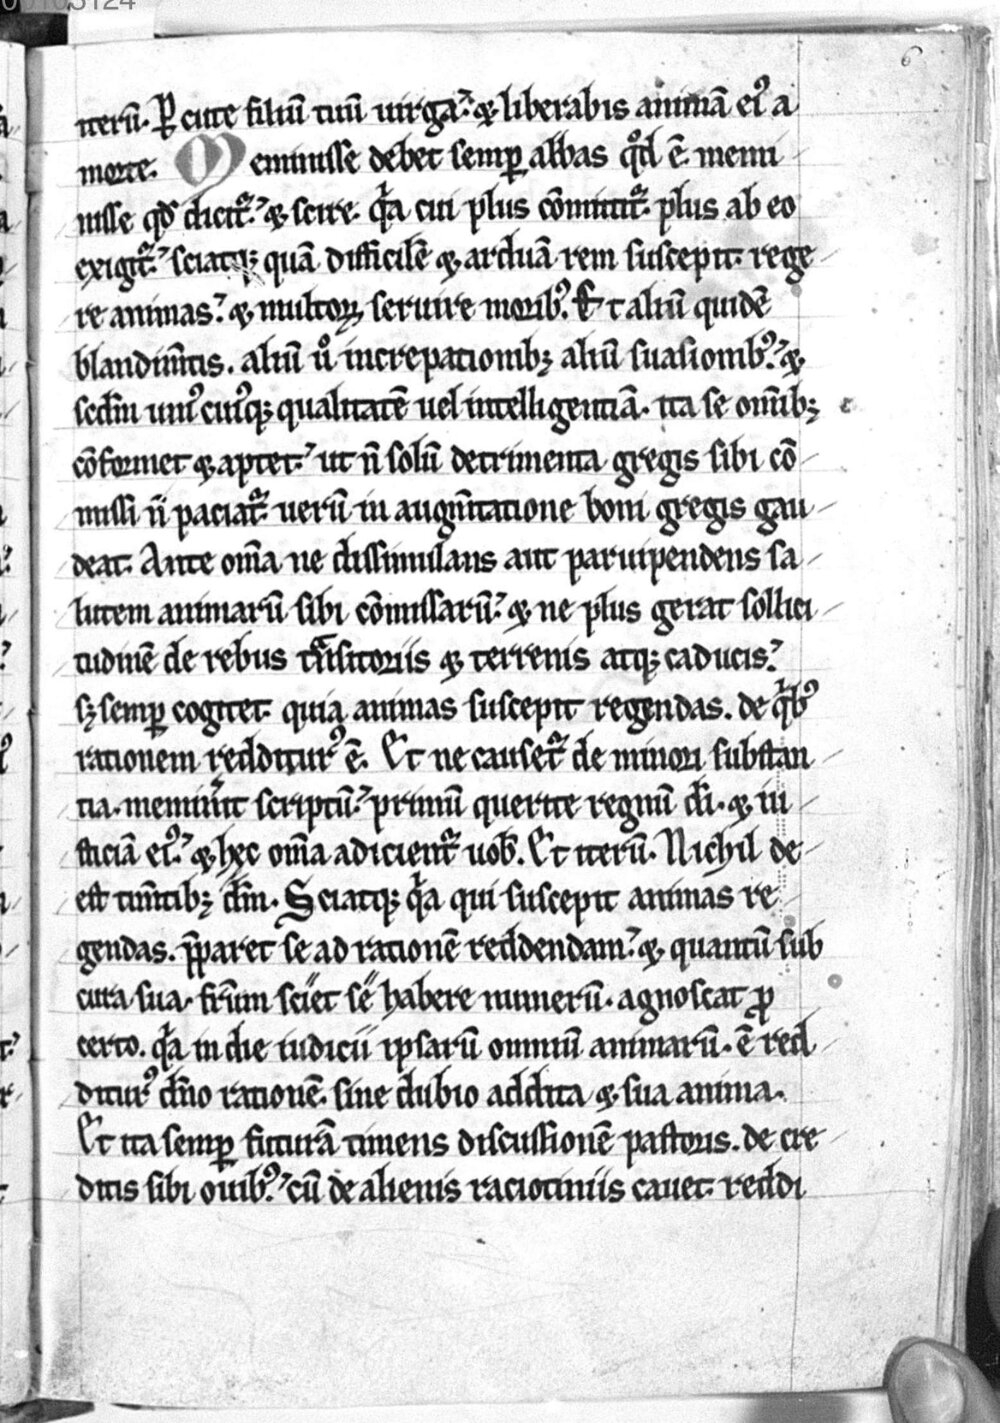 6
iterū. P̲cute filiū tuū uirga.᾽ ⁊ liberabis animā ei᾽ a
morte. Meminisse debet semꝑ abbas qͦd ē. memi
nisse qd̕ dicit᷑.᾽ ⁊ scire. qͥa cui plus cōmittit᷑. plus ab eo
exigit᷑.᾽ sciatqꝫ quā difficilē ⁊ arduā rem suscepit. rege
re animas.᾽ ⁊ multoꝝ seruire morib᾽. Et aliū quidē
blandim̄tis. aliū ů increpationibꝫ aliū suasionib᾽.᾽ ⁊
scd̄m uni᾽cui᾽qꝫ qualitatē uel intelligentiā. ita se om̄ibꝫ
cōformet ⁊ aptet.᾽ ut n̄ solū detrimenta gregis sibi cō
missi n̄ paciat᷑. uerū in augm̄tatione boni gregis gau
deat. Ante om̄a ne dissimulans aut paruipendens sa
lutem animarū sibi cōmissarū.᾽ ⁊ ne plus gerat sollici
tudinē de rebus tͣnsitoriis ⁊ terrenis atqꝫ caducis.᾽
sꝫ semꝑ cogitet. quia animas suscepit regendas. de qͥb᾽
rationem redditur᾽ ē. Et ne causet᷑ de minori substan
tia. memin̄it scriptū.᾽ primū querite regnū di̅. ⁊ iu
sticiā ei᾽.᾽ ⁊ hęc om̄a adicient᷑ uob̄. Et iterū. Nichil de
est tim̄tibꝫ dm̄. Sciatqꝫ qͥa qui suscepit animas re
gendas. p̄paret se ad rationē reddendam.᾽ ⁊ quantū sub
cura sua. fr̄um sciet sé habere numerū. agnoscat ꝓ
certo. qͥa in die iudicii ipsarū omniū animarū. ē red
ditur᾽ dn̄o rationē. sine dubio addita ⁊ sua anima.
Et ita semꝑ futurā timens discussionē pastoris. de cre
ditis sibi ouib᾽.᾽ cū de alienis raciociniis cauet. reddi